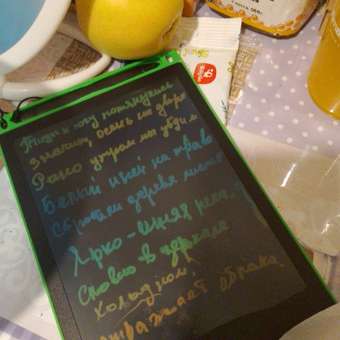 Птицы к югу потянулись
Значит, осень на дворе
Рано утром мы увидим
Белый иней на траве
Сбросили деревья листья
Ярко-синяя река,
Словно в зеркале
холодном,
отражает облака.